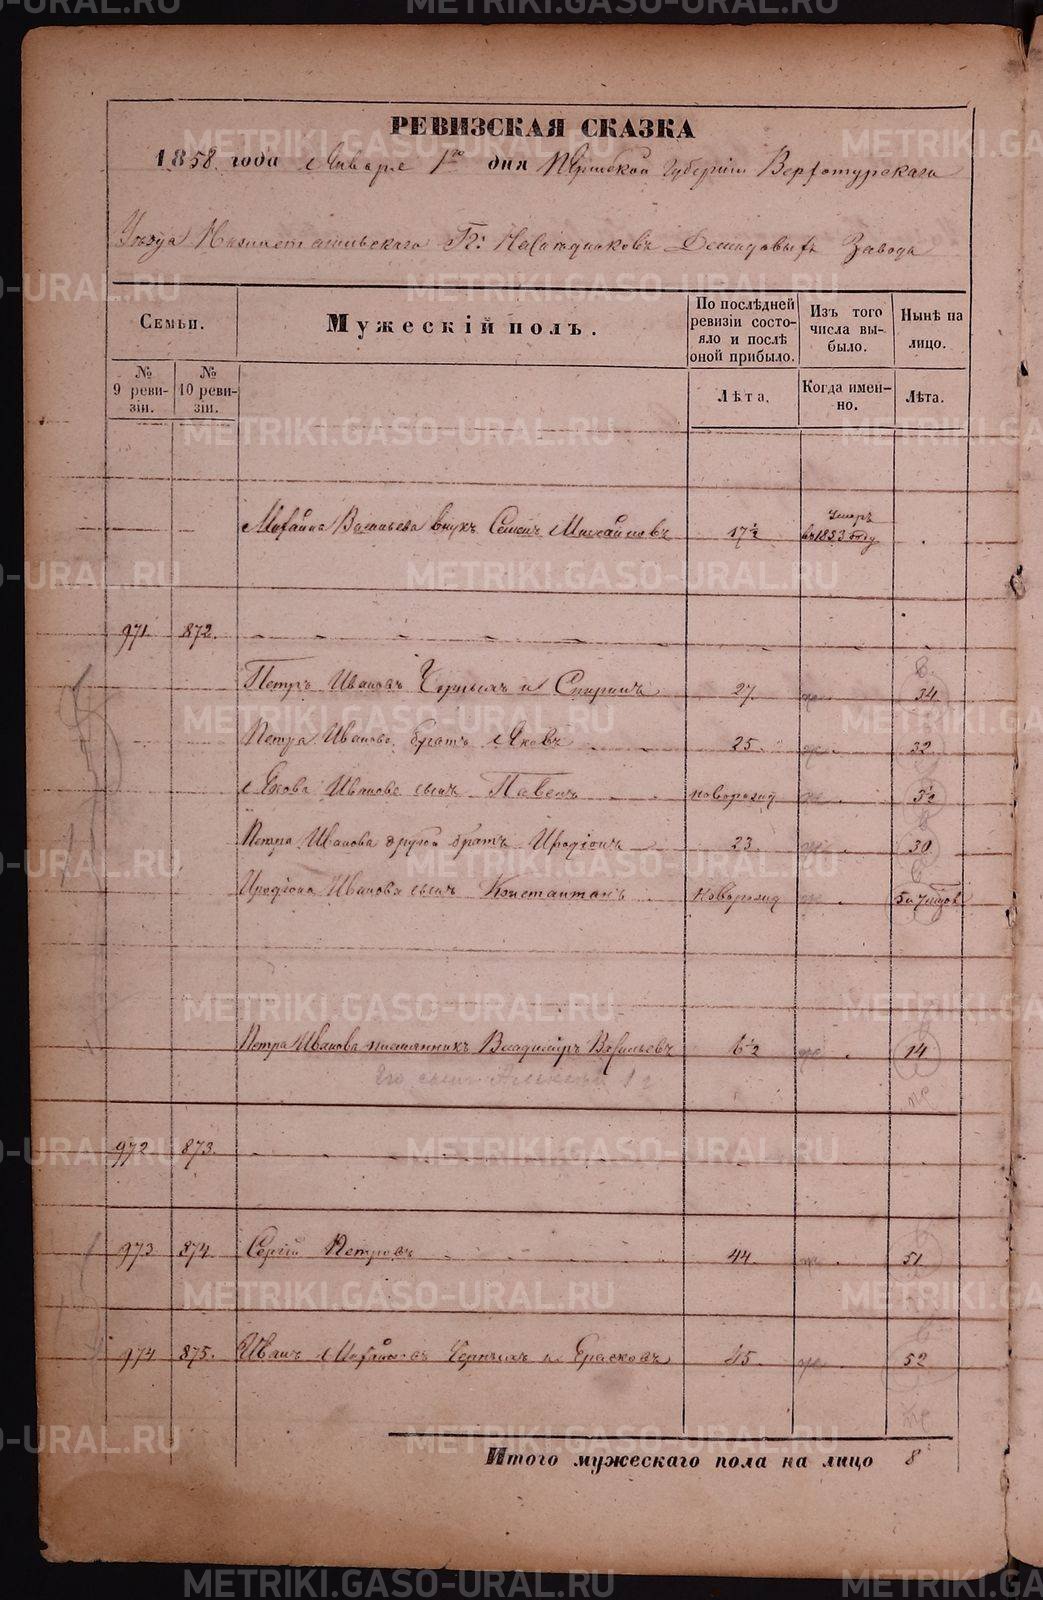 РЕВИЗСКАЯ СКАЗКА
1858 года Января 1го дня Пермской Губерніи Верхотурскаго
Уезда Нижнетагильскаго Гг: Наследниковъ Демидовыхъ Завода
Семьи.
Мужескій полъ.
По послѣдней ревизіи состояло и послѣ оной прибыло.
Изъ того числа выбыло.
Нынѣ на лицо.
№ 9 ревизіи.
№ 10 ревизіи.
Лѣта.
Когда именно.
Лѣта.
Михайла Васильева внукъ Семенъ Михайловъ 17½ Умеръ въ 1853 году
971. 872.
Петръ Ивановъ Черныхъ и Спиринъ 27. 34
Петра Иванова братъ Яковъ 25. 32
Якова Иванова сынъ Павелъ новорожд 5½
Петра Иванова другой братъ Иродіонъ 23. 30
Иродіона Иванова сынъ Константинъ новорожд 5 и 7 мцов
Петра Иванова племянникъ Владиміръ Васильевъ 6½ 14
Его сынъ Алексей 1 г
972 873.
973 874. Сергій Петровъ 44. 51
974 875. Иванъ Михайловъ Черныхъ и Ерасковъ 45. 52
Итого мужескаго пола на лицо 8
METRIKI.GASO-URAL.RU